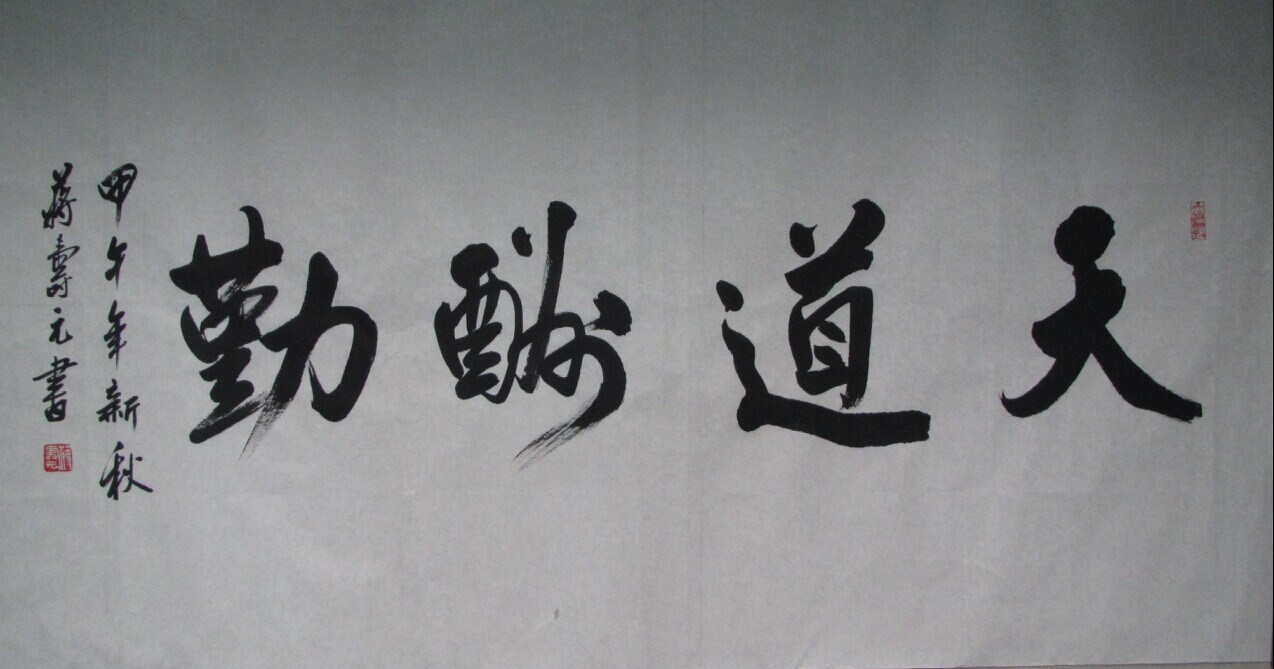 天道酬勤
甲午年新秋
蒋壽元書